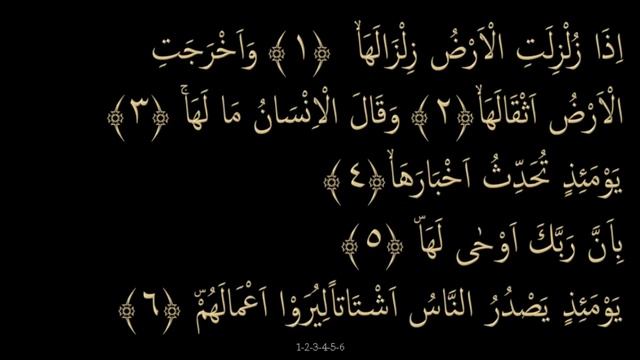 اِذَا زُلْزِلَتِ الْاَرْضُ زِلْزَالَهَاۙ ﴿١﴾ وَاَخْرَجَتِ
الْاَرْضُ اَثْقَالَهَاۙ ﴿٢﴾ وَقَالَ الْاِنْسَانُ مَا لَهَاۚ ﴿٣﴾
يَوْمَئِذٍ تُحَدِّثُ اَخْبَارَهَاۙ ﴿٤﴾
بِاَنَّ رَبَّكَ اَوْحٰى لَهَاۜ ﴿٥﴾
يَوْمَئِذٍ يَصْدُرُ النَّاسُ اَشْتَاتاً لِيُرَوْا اَعْمَالَهُمْۜ ﴿٦﴾
1-2-3-4-5-6